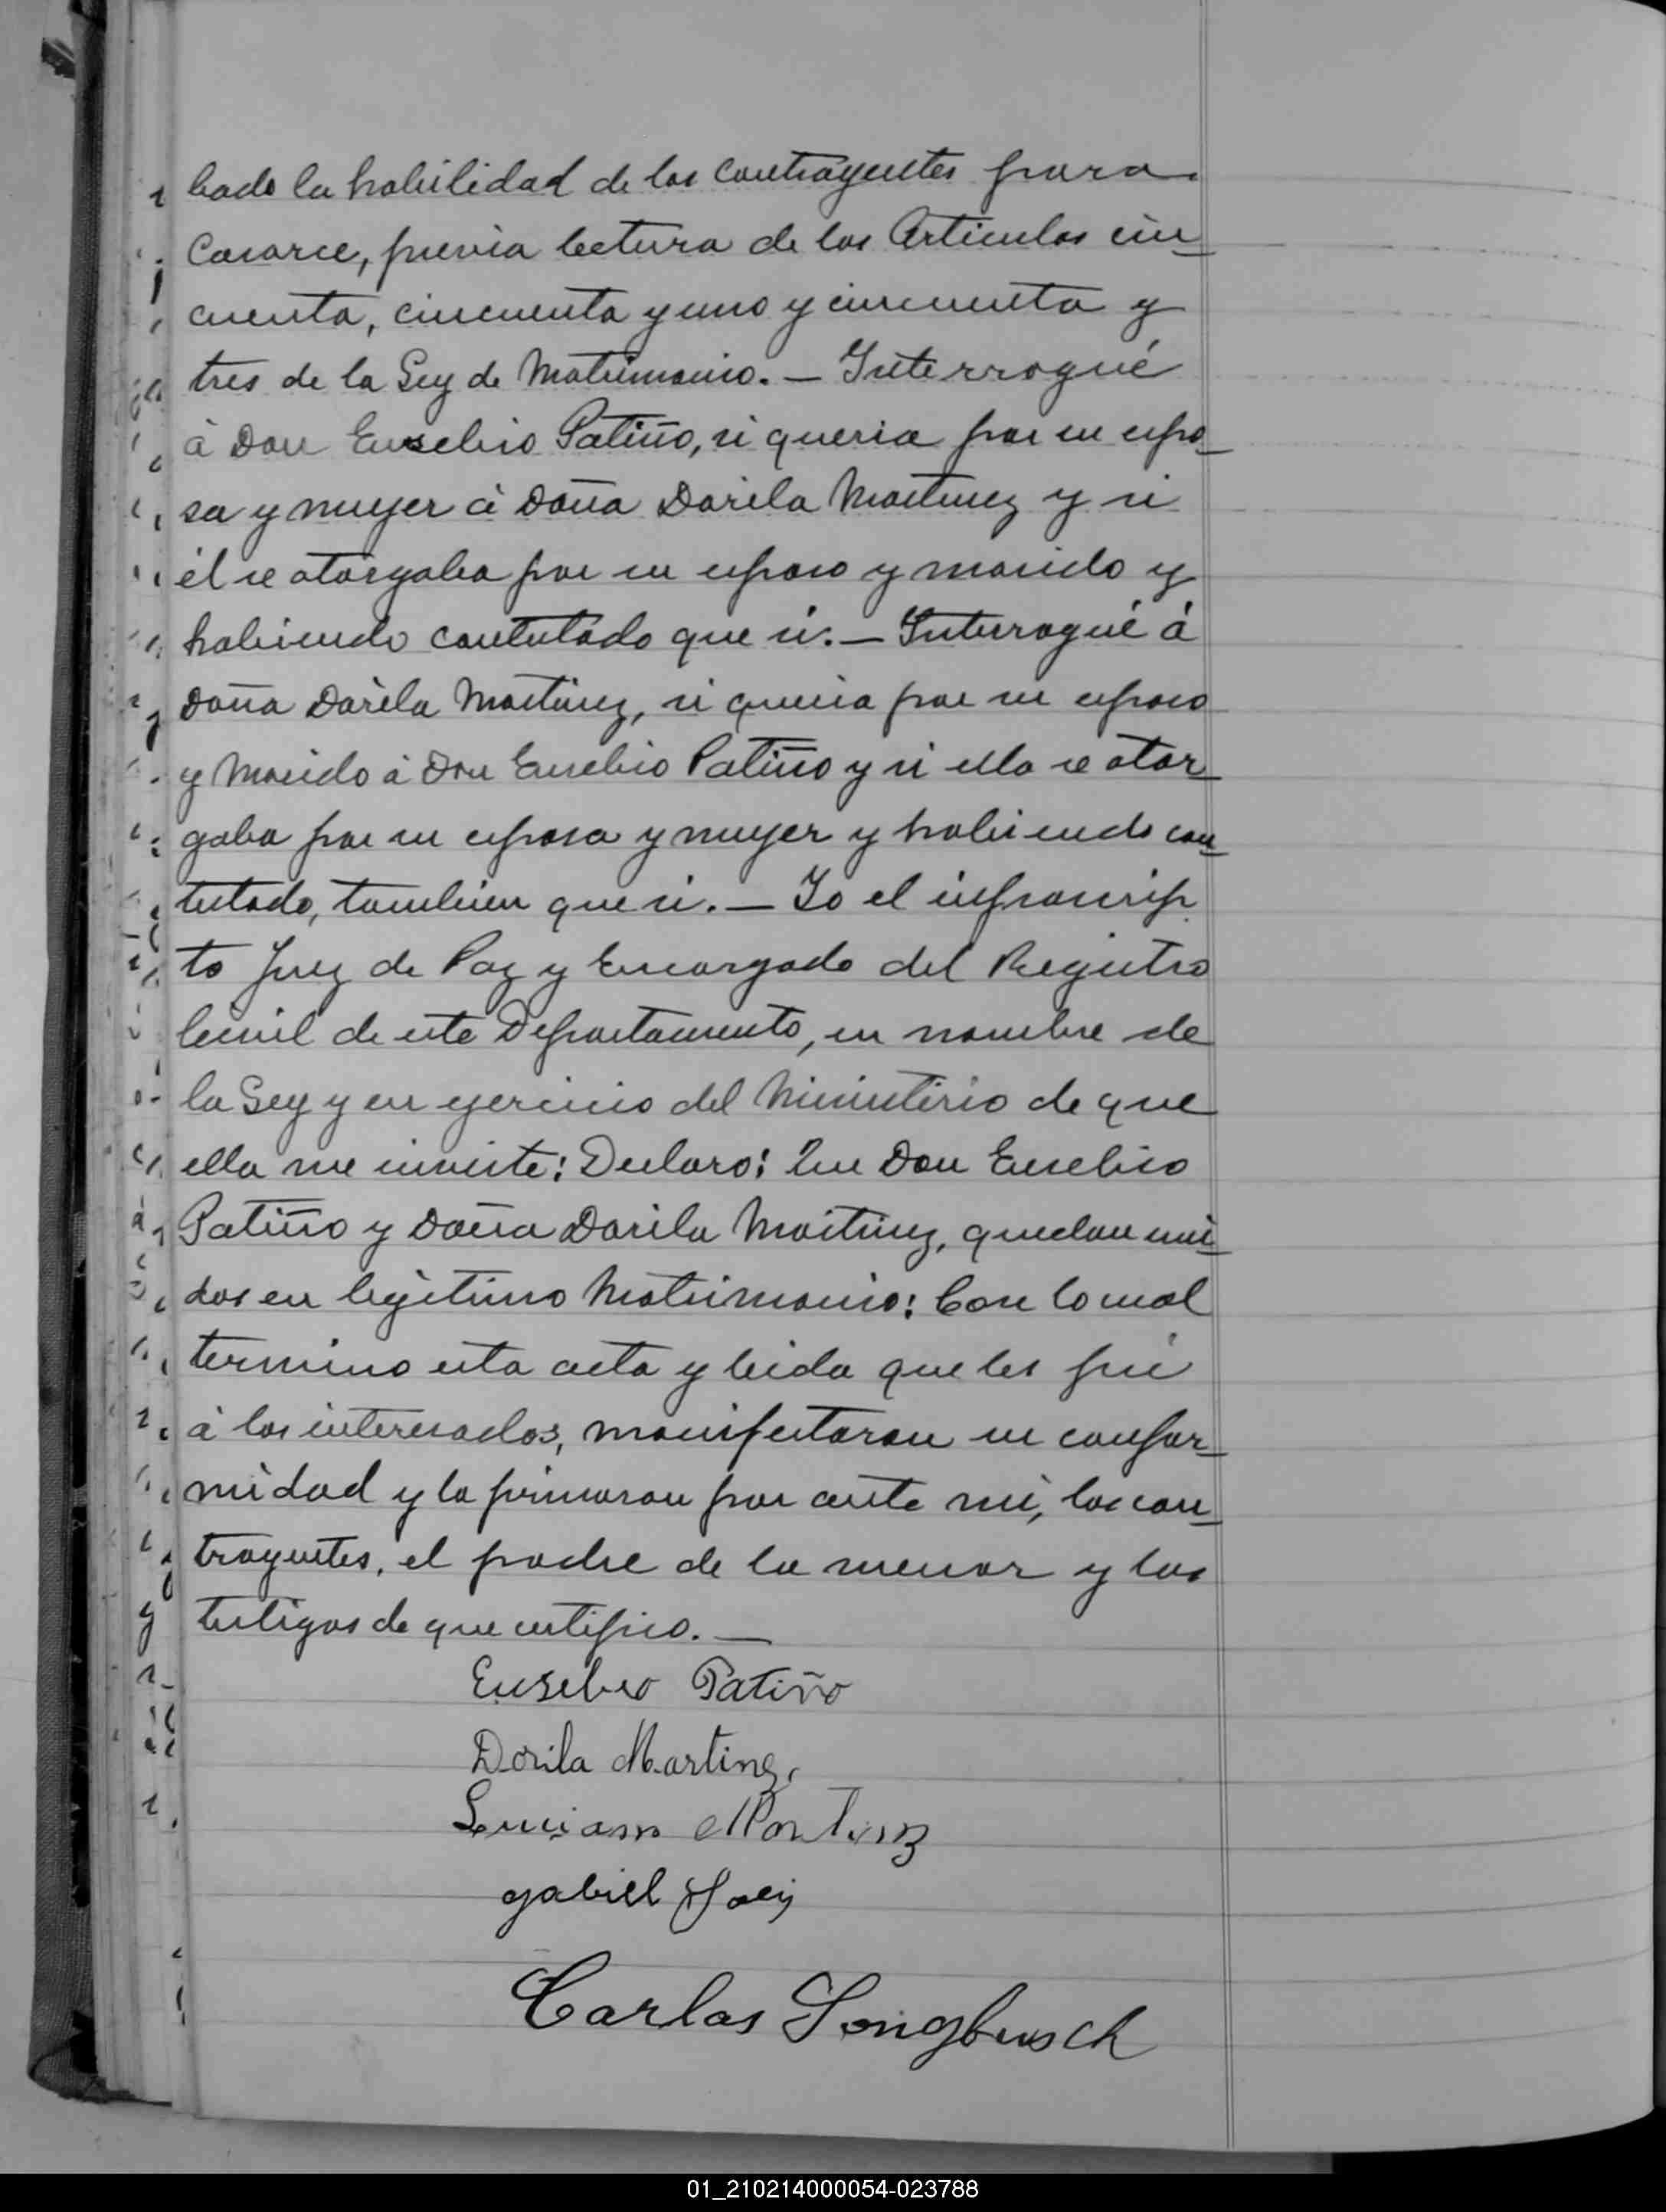 bado la habilidad de los Contrayentes para
Casarce, previa lectura de los Articulos cin-
cuenta, cincuenta y uno y cincuenta y
tres de la Ley de Matrimonio. — Interrogué
á Don Eusebio Patiño, si queria por su espo-
sa y muger á Doña Dorila Martinez y si
él se otorgaba por su esposo y marido y
habiendo contestado que si. — Interrogué á
Doña Dorila Martinez, si queria por su esposo
y Marido á Don Eusebio Patiño y si ella se otor-
gaba por su esposa y muger y habiendo con-
testado, tambien que si. — Yo el infrascrip
to Juez de Paz y Encargado del Registro
Civil de este Departamento, en nombre de
la Ley y en ejercicio del Ministerio de que
ella me inviste: Declaro: Que Don Eusebio
Patiño y Doña Dorila Martinez, quedan uni-
dos en legitimo Matrimonio: Con lo cual
termino esta acta y leida que les fué
á los interesados, manifestaron su confor-
midad y la firmaron por ante mi, los con-
trayentes, el padre de la menor y los
testigos de que certifico. —
Eusebio Patiño
Dorila Martinez
Luciano Martinez
gabriel
Carlos Longbusch
01_210214000054-023788